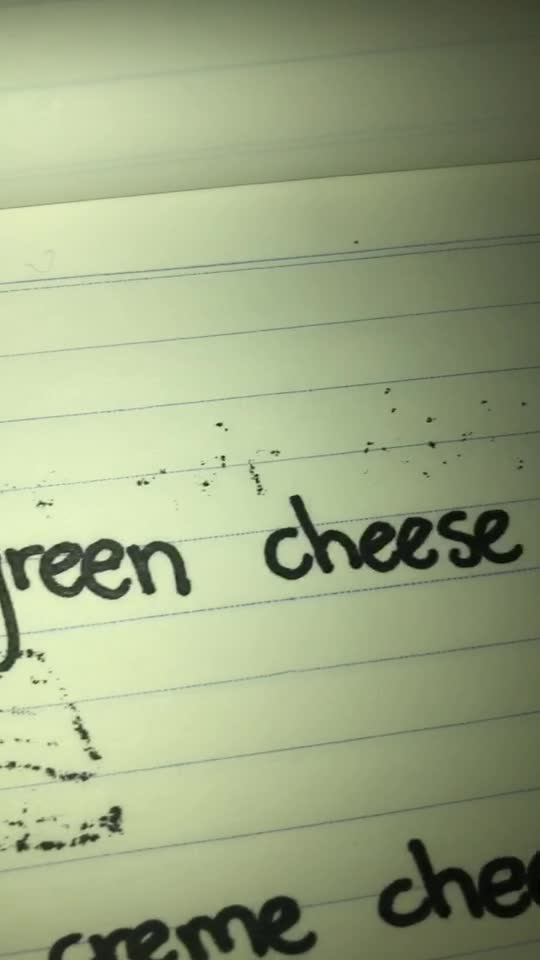 green cheese
creme chee